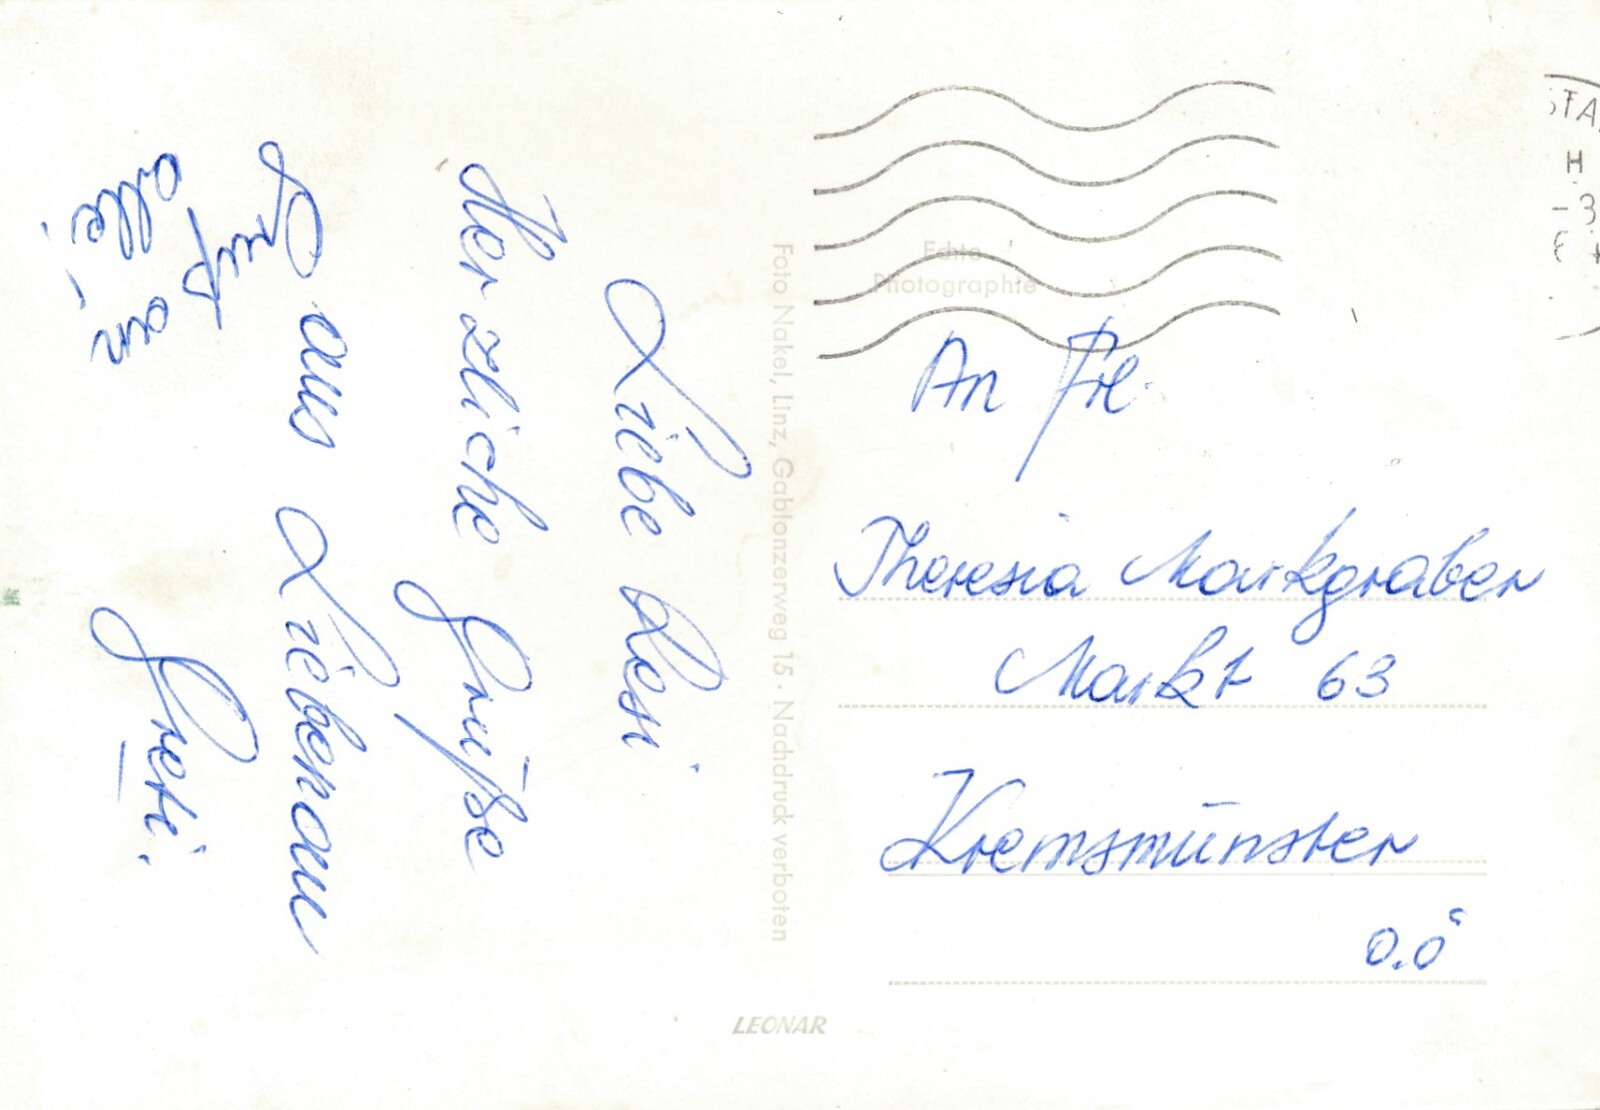 Liebe Resi
Herzliche Grüße
aus Liebenau
Gruß an
alle!
Greti.
Foto Nakel, Linz, Gablonzerweg 15 · Nachdruck verboten
Echte
Photographie
An Frl.
Theresia Markgraber
Markt 63
Kremsmünster
O.Ö
LEONAR
STA
H
-3